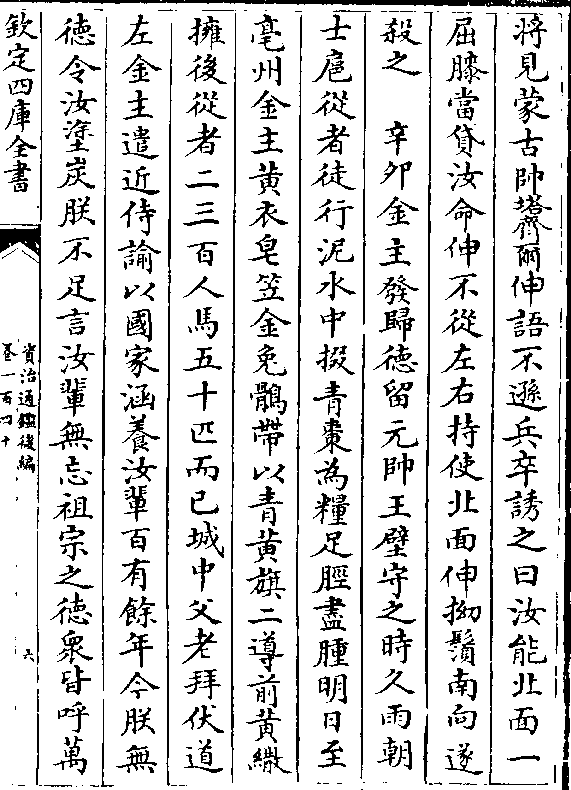 將見蒙古帥塔齊爾伸語不遜兵卒誘之曰汝能北面一
屈膝當貸汝命伸不從左右持使北面伸拗鬚南向遂
殺之　辛卯金主發歸德留元帥王璧守之時久雨朝
士扈從者徒行泥水中掇青棗為糧足脛盡腫明日至
亳州金主黄衣皂笠金兔鶻帶以青黄旗二導前黄繖
擁後從者二三百人馬五十匹而已城中父老拜伏道
左金主遣近侍諭以國家涵養汝輩百有餘年今朕無
德令汝塗炭朕不足言汝輩無忘祖宗之德衆皆呼萬
欽定四庫全書
資治通鑑後編
卷一百四十
六